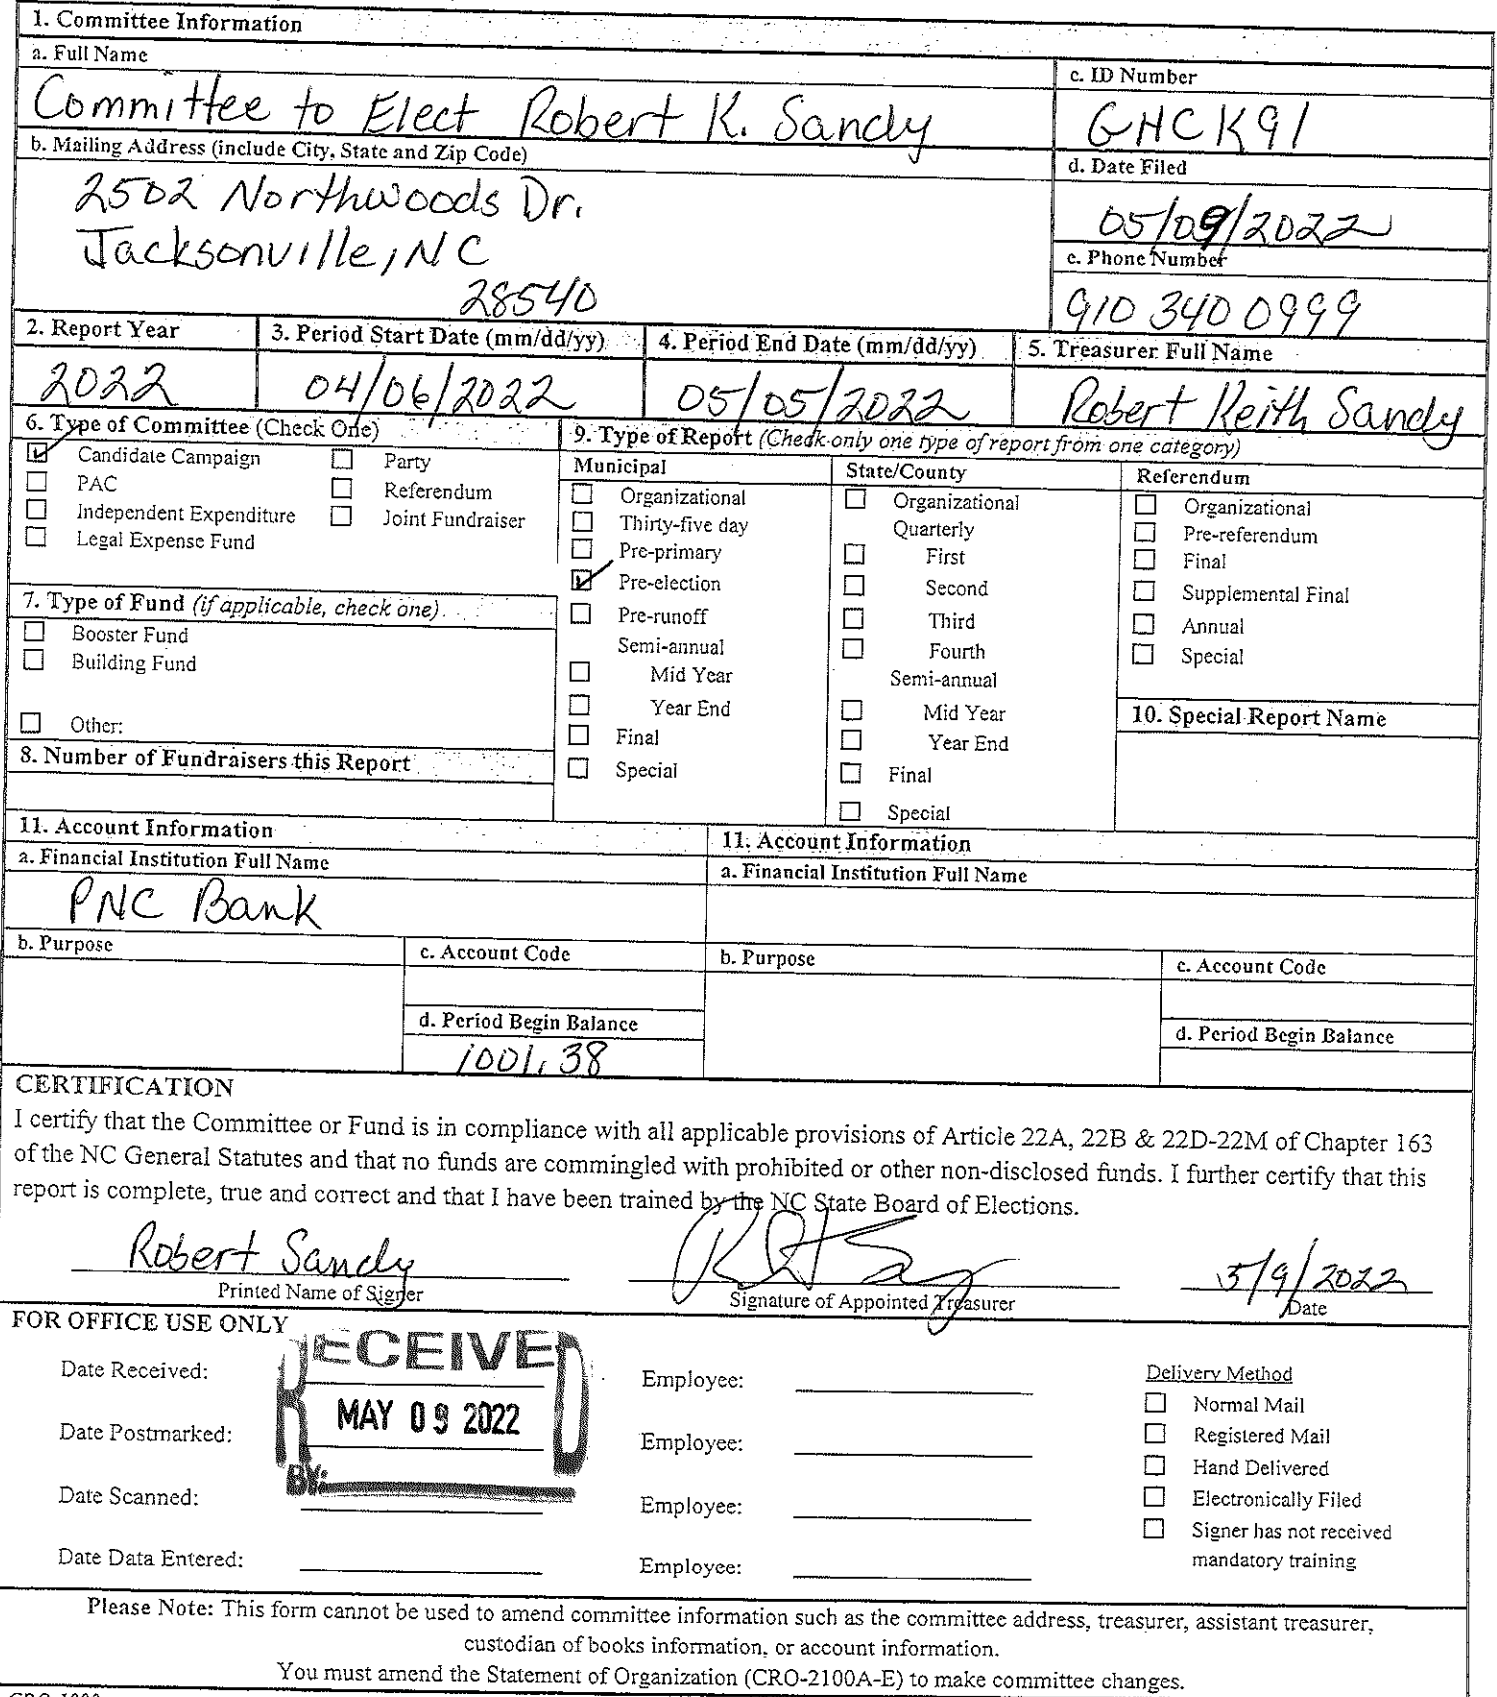 1. Committee Information
a. Full Name
c. ID Number
Committee to Elect Robert K. Sandy
GHCK91
b. Mailing Address (include City, State and Zip Code)
d. Date Filed
2502 Northwoods Dr.
Jacksonville, NC
28540
05/09/2022
e. Phone Number
910 340 0999
2. Report Year
3. Period Start Date (mm/dd/yy)
4. Period End Date (mm/dd/yy)
5. Treasurer Full Name
2022
04/06/2022
05/05/2022
Robert Keith Sandy
6. Type of Committee (Check One)
Candidate Campaign
Party
PAC
Referendum
Independent Expenditure
Joint Fundraiser
Legal Expense Fund
7. Type of Fund (if applicable, check one)
Booster Fund
Building Fund
Other:
8. Number of Fundraisers this Report
9. Type of Report (Check only one type of report from one category)
Municipal
Organizational
Thirty-five day
Pre-primary
Pre-election
Pre-runoff
Semi-annual
Mid Year
Year End
Final
Special
State/County
Organizational
Quarterly
First
Second
Third
Fourth
Semi-annual
Mid Year
Year End
Final
Special
Referendum
Organizational
Pre-referendum
Final
Supplemental Final
Annual
Special
10. Special Report Name
11. Account Information
a. Financial Institution Full Name
PNC Bank
b. Purpose
c. Account Code
d. Period Begin Balance
1001.38
11. Account Information
a. Financial Institution Full Name
b. Purpose
c. Account Code
d. Period Begin Balance
CERTIFICATION
I certify that the Committee or Fund is in compliance with all applicable provisions of Article 22A, 22B & 22D-22M of Chapter 163
of the NC General Statutes and that no funds are commingled with prohibited or other non-disclosed funds. I further certify that this
report is complete, true and correct and that I have been trained by the NC State Board of Elections.
Robert Sandy
5/9/2022
Printed Name of Signer
Signature of Appointed Treasurer
Date
FOR OFFICE USE ONLY
RECEIVED
MAY 09 2022
BY:
Date Received:
Employee:
Date Postmarked:
Employee:
Date Scanned:
Employee:
Date Data Entered:
Employee:
Delivery Method
Normal Mail
Registered Mail
Hand Delivered
Electronically Filed
Signer has not received
mandatory training
Please Note: This form cannot be used to amend committee information such as the committee address, treasurer, assistant treasurer,
custodian of books information, or account information.
You must amend the Statement of Organization (CRO-2100A-E) to make committee changes.